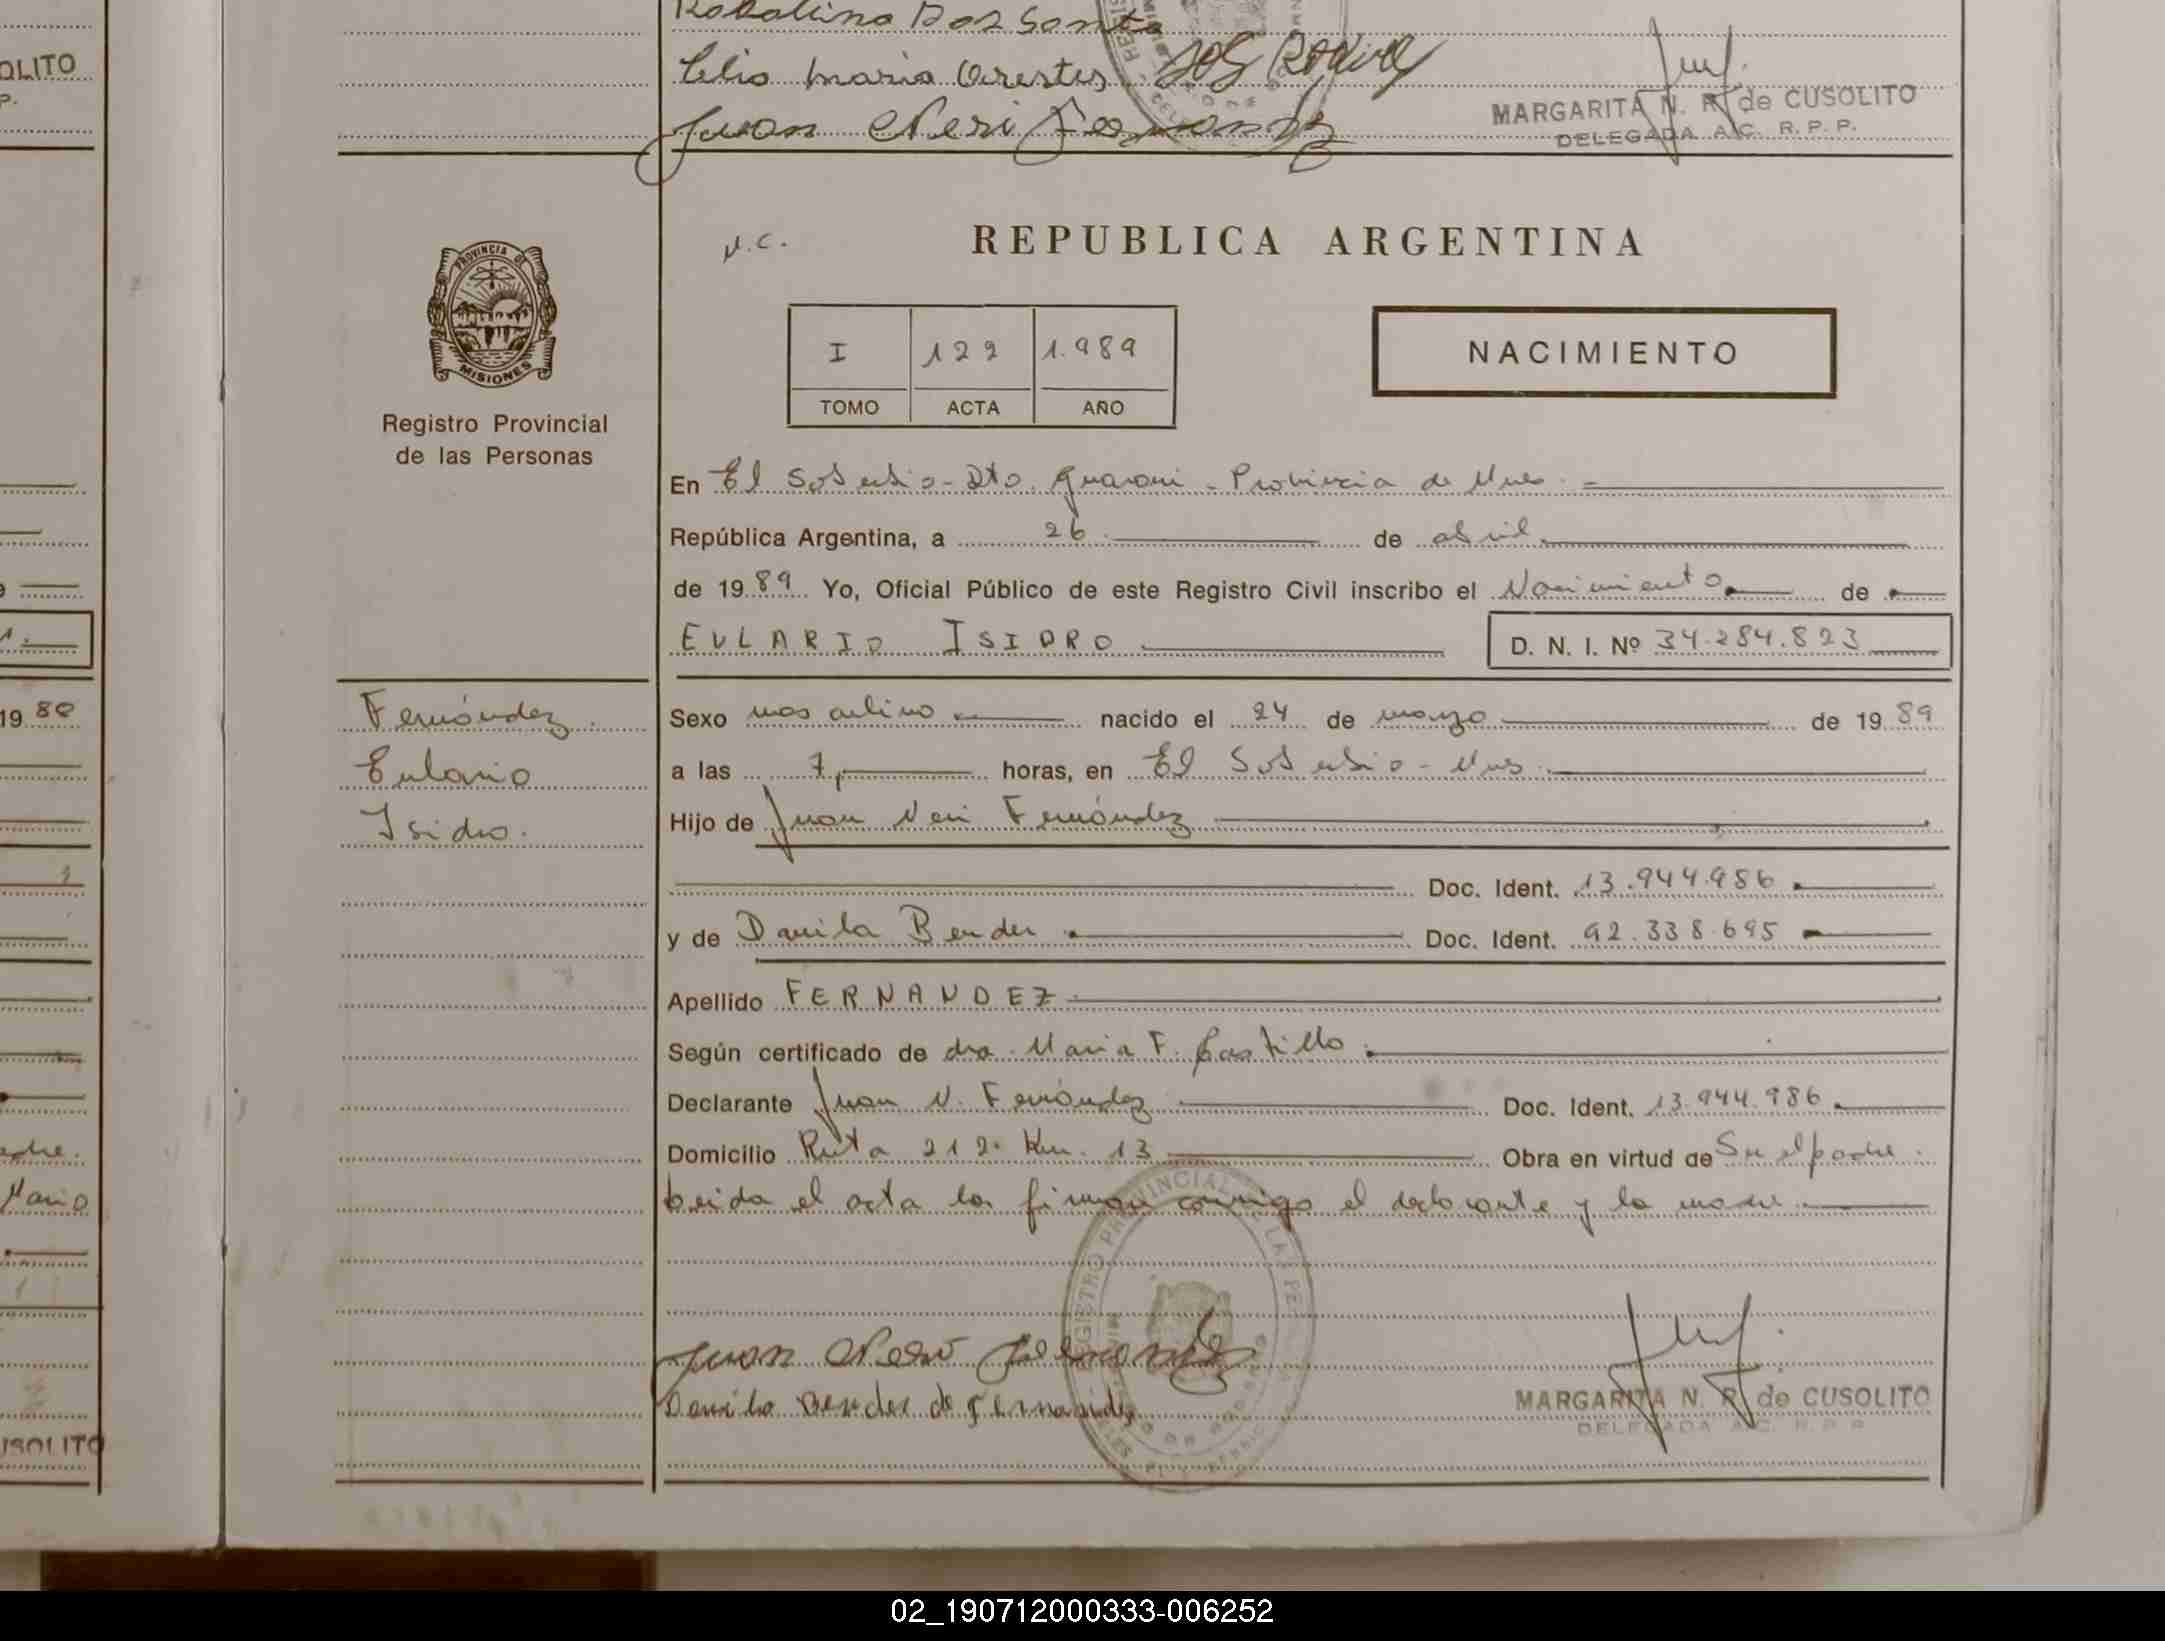 OLITO
P.
Dos Santo
Celia Maria Orestes
Juan Neri Fernandez
MARGARITA N. R. de CUSOLITO
DELEGADA A.C. R. P. P.
N.C.
REPUBLICA ARGENTINA
PROVINCIA DE
MISIONES
Registro Provincial
de las Personas
I 122 1.989
TOMO ACTA AÑO
NACIMIENTO
En El Soberbio - Dto. Guaraní - Provincia de Mnes. -
República Argentina, a 26 de abril
de 1989 Yo, Oficial Público de este Registro Civil inscribo el Nacimiento de
EULARIO ISIDRO D. N. I. Nº 34.284.823
Fernández
Eulario
Isidro.
Sexo masculino nacido el 24 de marzo de 1989
a las 7, horas, en El Soberbio - Mnes
Hijo de Juan Neri Fernández
Doc. Ident. 13.944.986
y de Danila Bender Doc. Ident. 92.338.695
Apellido FERNANDEZ
Según certificado de dra. Maria F. Castillo
Declarante Juan N. Fernández Doc. Ident. 13.944.986
Domicilio Ruta 212. Km. 13 Obra en virtud de Su el padre.
Leida el acta la firman conmigo el declarante y la madre
Juan Neri Fernandez
Danila Bender de Fernandez
MARGARITA N. R. de CUSOLITO
DELEGADA A.C. R. P. P.
19 89
adre.
Mario
USOLITO
02_190712000333-006252